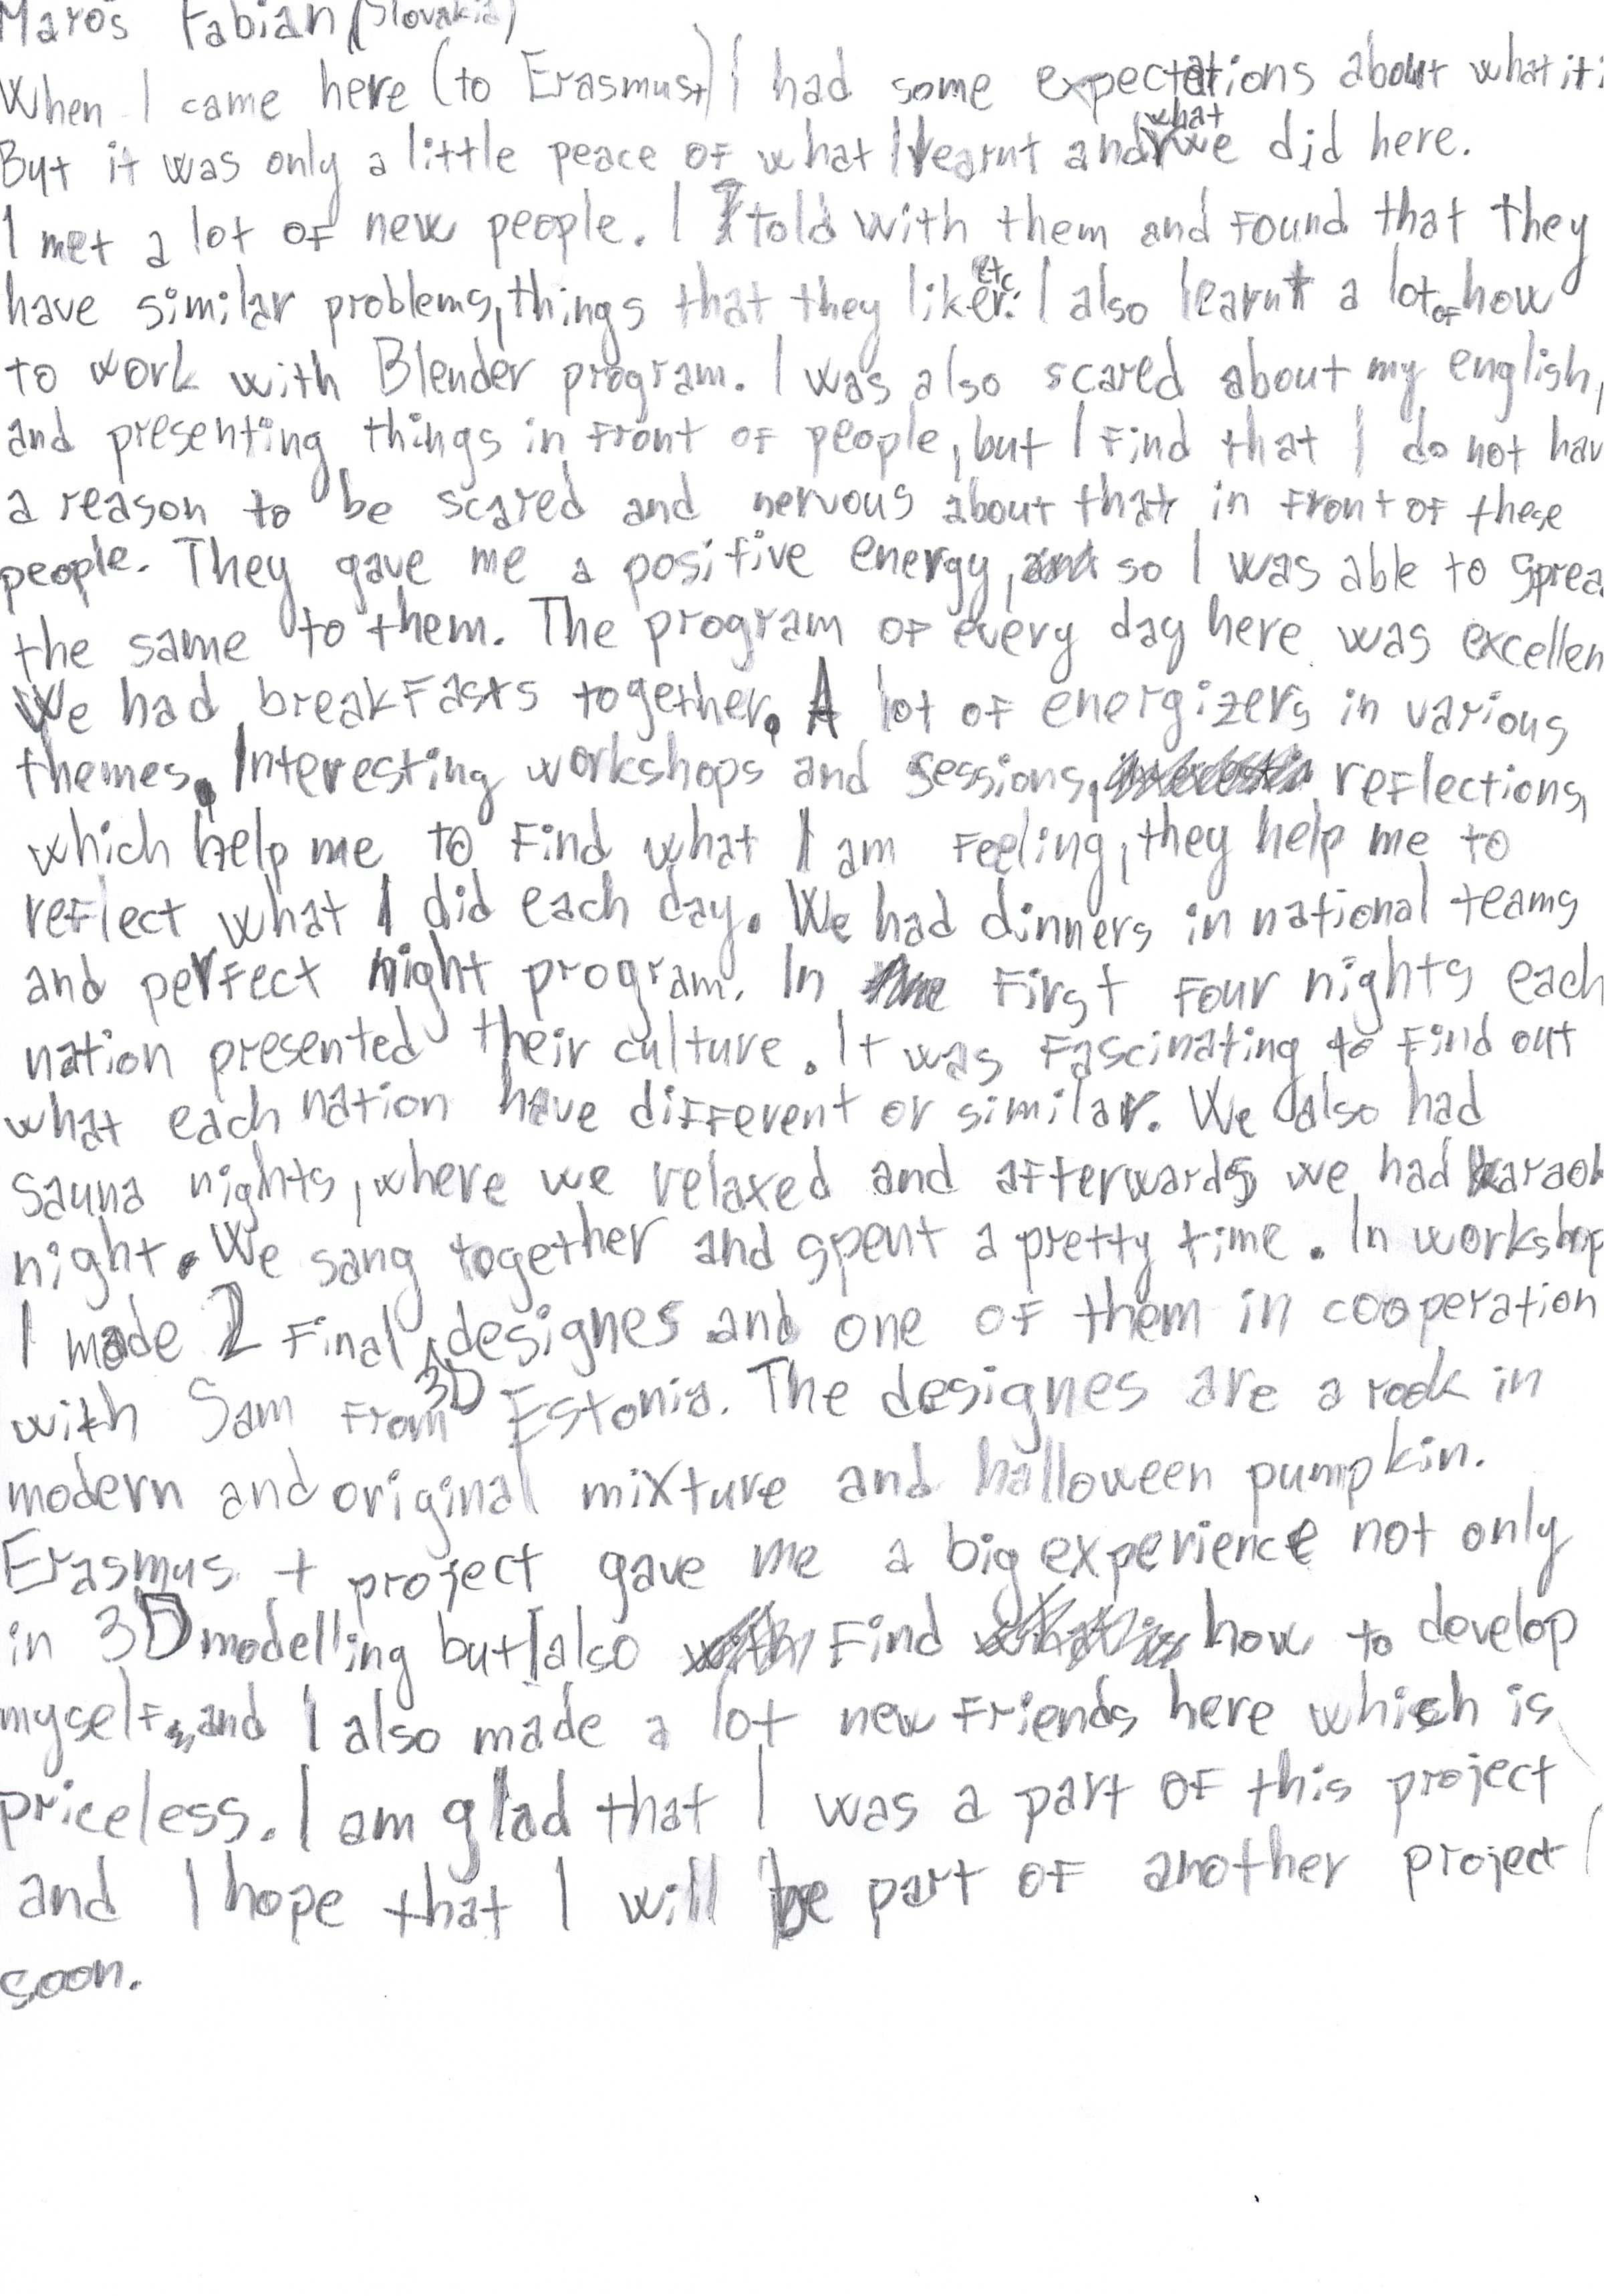 Maroš Fabian (Slovakia)
When I came here (to Erasmus+) I had some expectations about what it
But it was only a little peace of what I learnt and what we did here.
I met a lot of new people. I told with them and found that they
have similar problems, things that they like etc. I also learnt a lot of how
to work with Blender program. I was also scared about my english,
and presenting things in front of people, but I find that I do not hav
a reason to be scared and nervous about that in front of these
people. They gave me a positive energy, so I was able to sprea
the same to them. The program of every day here was excellen
We had breakfasts together. A lot of energizers in various
themes. Interesting workshops and sessions, reflections,
which help me to find what I am feeling, they help me to
reflect what I did each day. We had dinners in national teams
and perfect night program. In first four nights each
nation presented their culture. It was fascinating to find out
what each nation have different or similar. We also had
sauna nights, where we relaxed and afterwards we had karaok
night. We sang together and spent a pretty time. In workshop
I made 2 final 3D designes and one of them in cooperation
with Sam from Estonia. The designes are a rook in
modern and original mixture and halloween pumpkin.
Erasmus + project gave me a big experience not only
in 3D modelling but I also find how to develop
myself, and I also made a lot new friends here which is
priceless. I am glad that I was a part of this project
and I hope that I will be part of another project
soon.